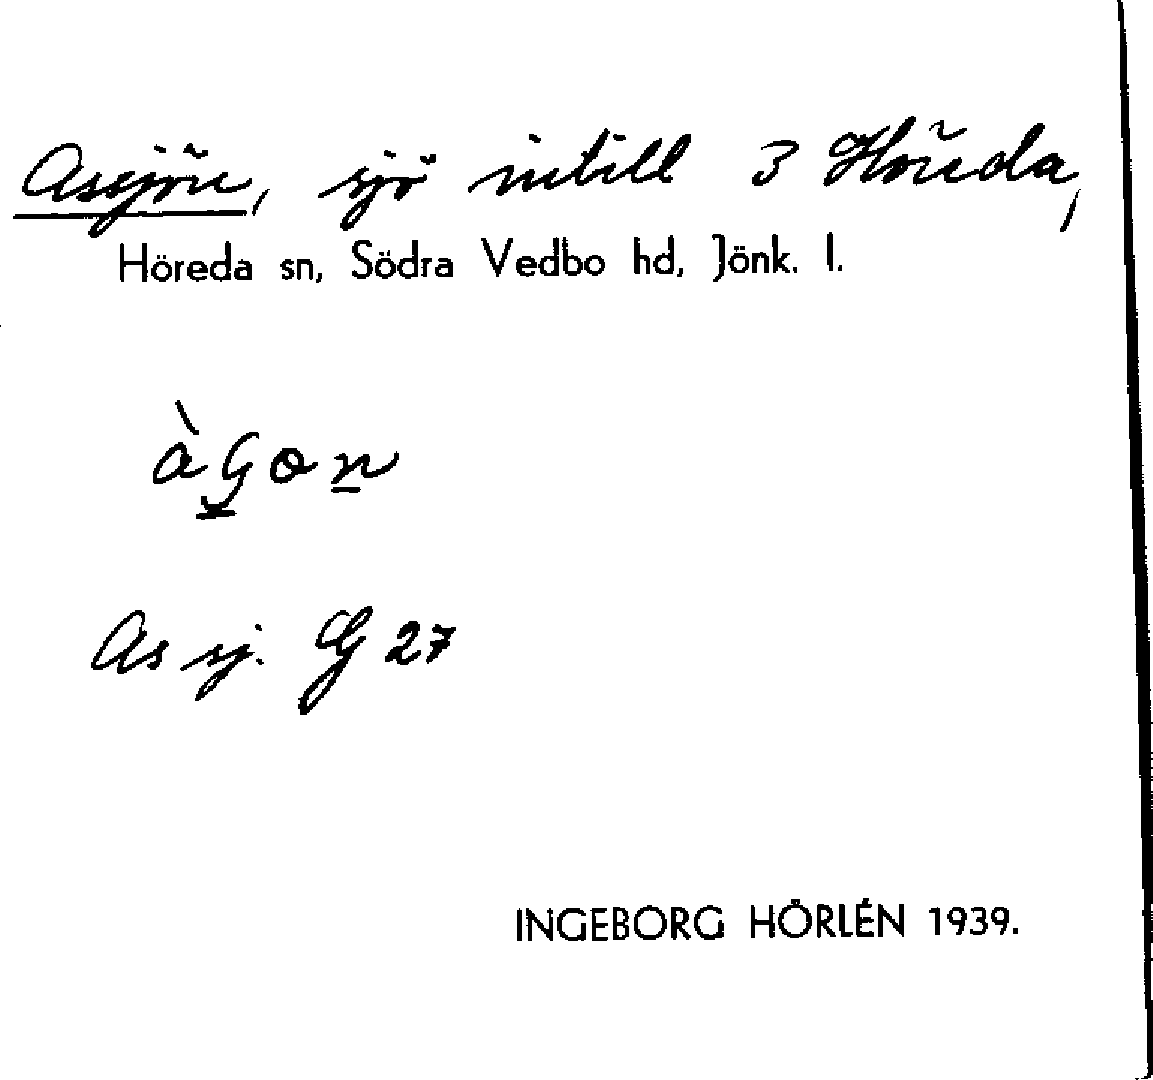 Assjön, sjö intill 3 Höreda,
Höreda sn, Södra Vedbo hd, Jönk. l.
As sj. G 27
INGEBORG HÖRLÉN 1939.